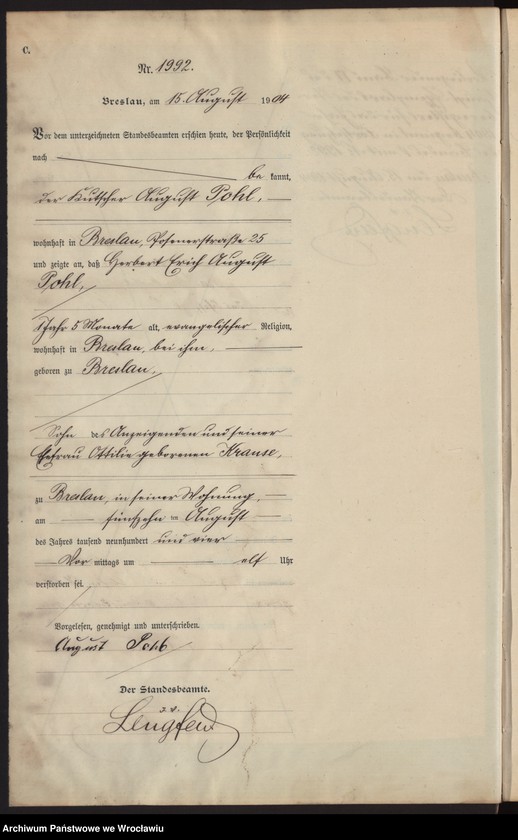 C.
Nr. 1992.
Breslau, am 15. August 1904
Vor dem unterzeichneten Standesbeamten erschien heute, der Persönlichkeit
nach
be kannt,
der Kutscher August Pohl,
wohnhaft in Breslau, Posenerstraße 25
und zeigte an, daß Herbert Erich August
Pohl,
1 Jahr 5 Monate alt, evangelischer Religion,
wohnhaft in Breslau, bei ihm,
geboren zu Breslau,
Sohn des Anzeigenden und seiner
Ehefrau Ottilie geborenen Krause,
zu Breslau, in seiner Wohnung,
am fünfzehn ten August
des Jahres tausend neunhundert und vier
Vor mittags um elf Uhr
verstorben sei.
Vorgelesen, genehmigt und unterschrieben.
August Pohl
Der Standesbeamte.
J. V.
Lengfeld
Archiwum Państwowe we Wrocławiu